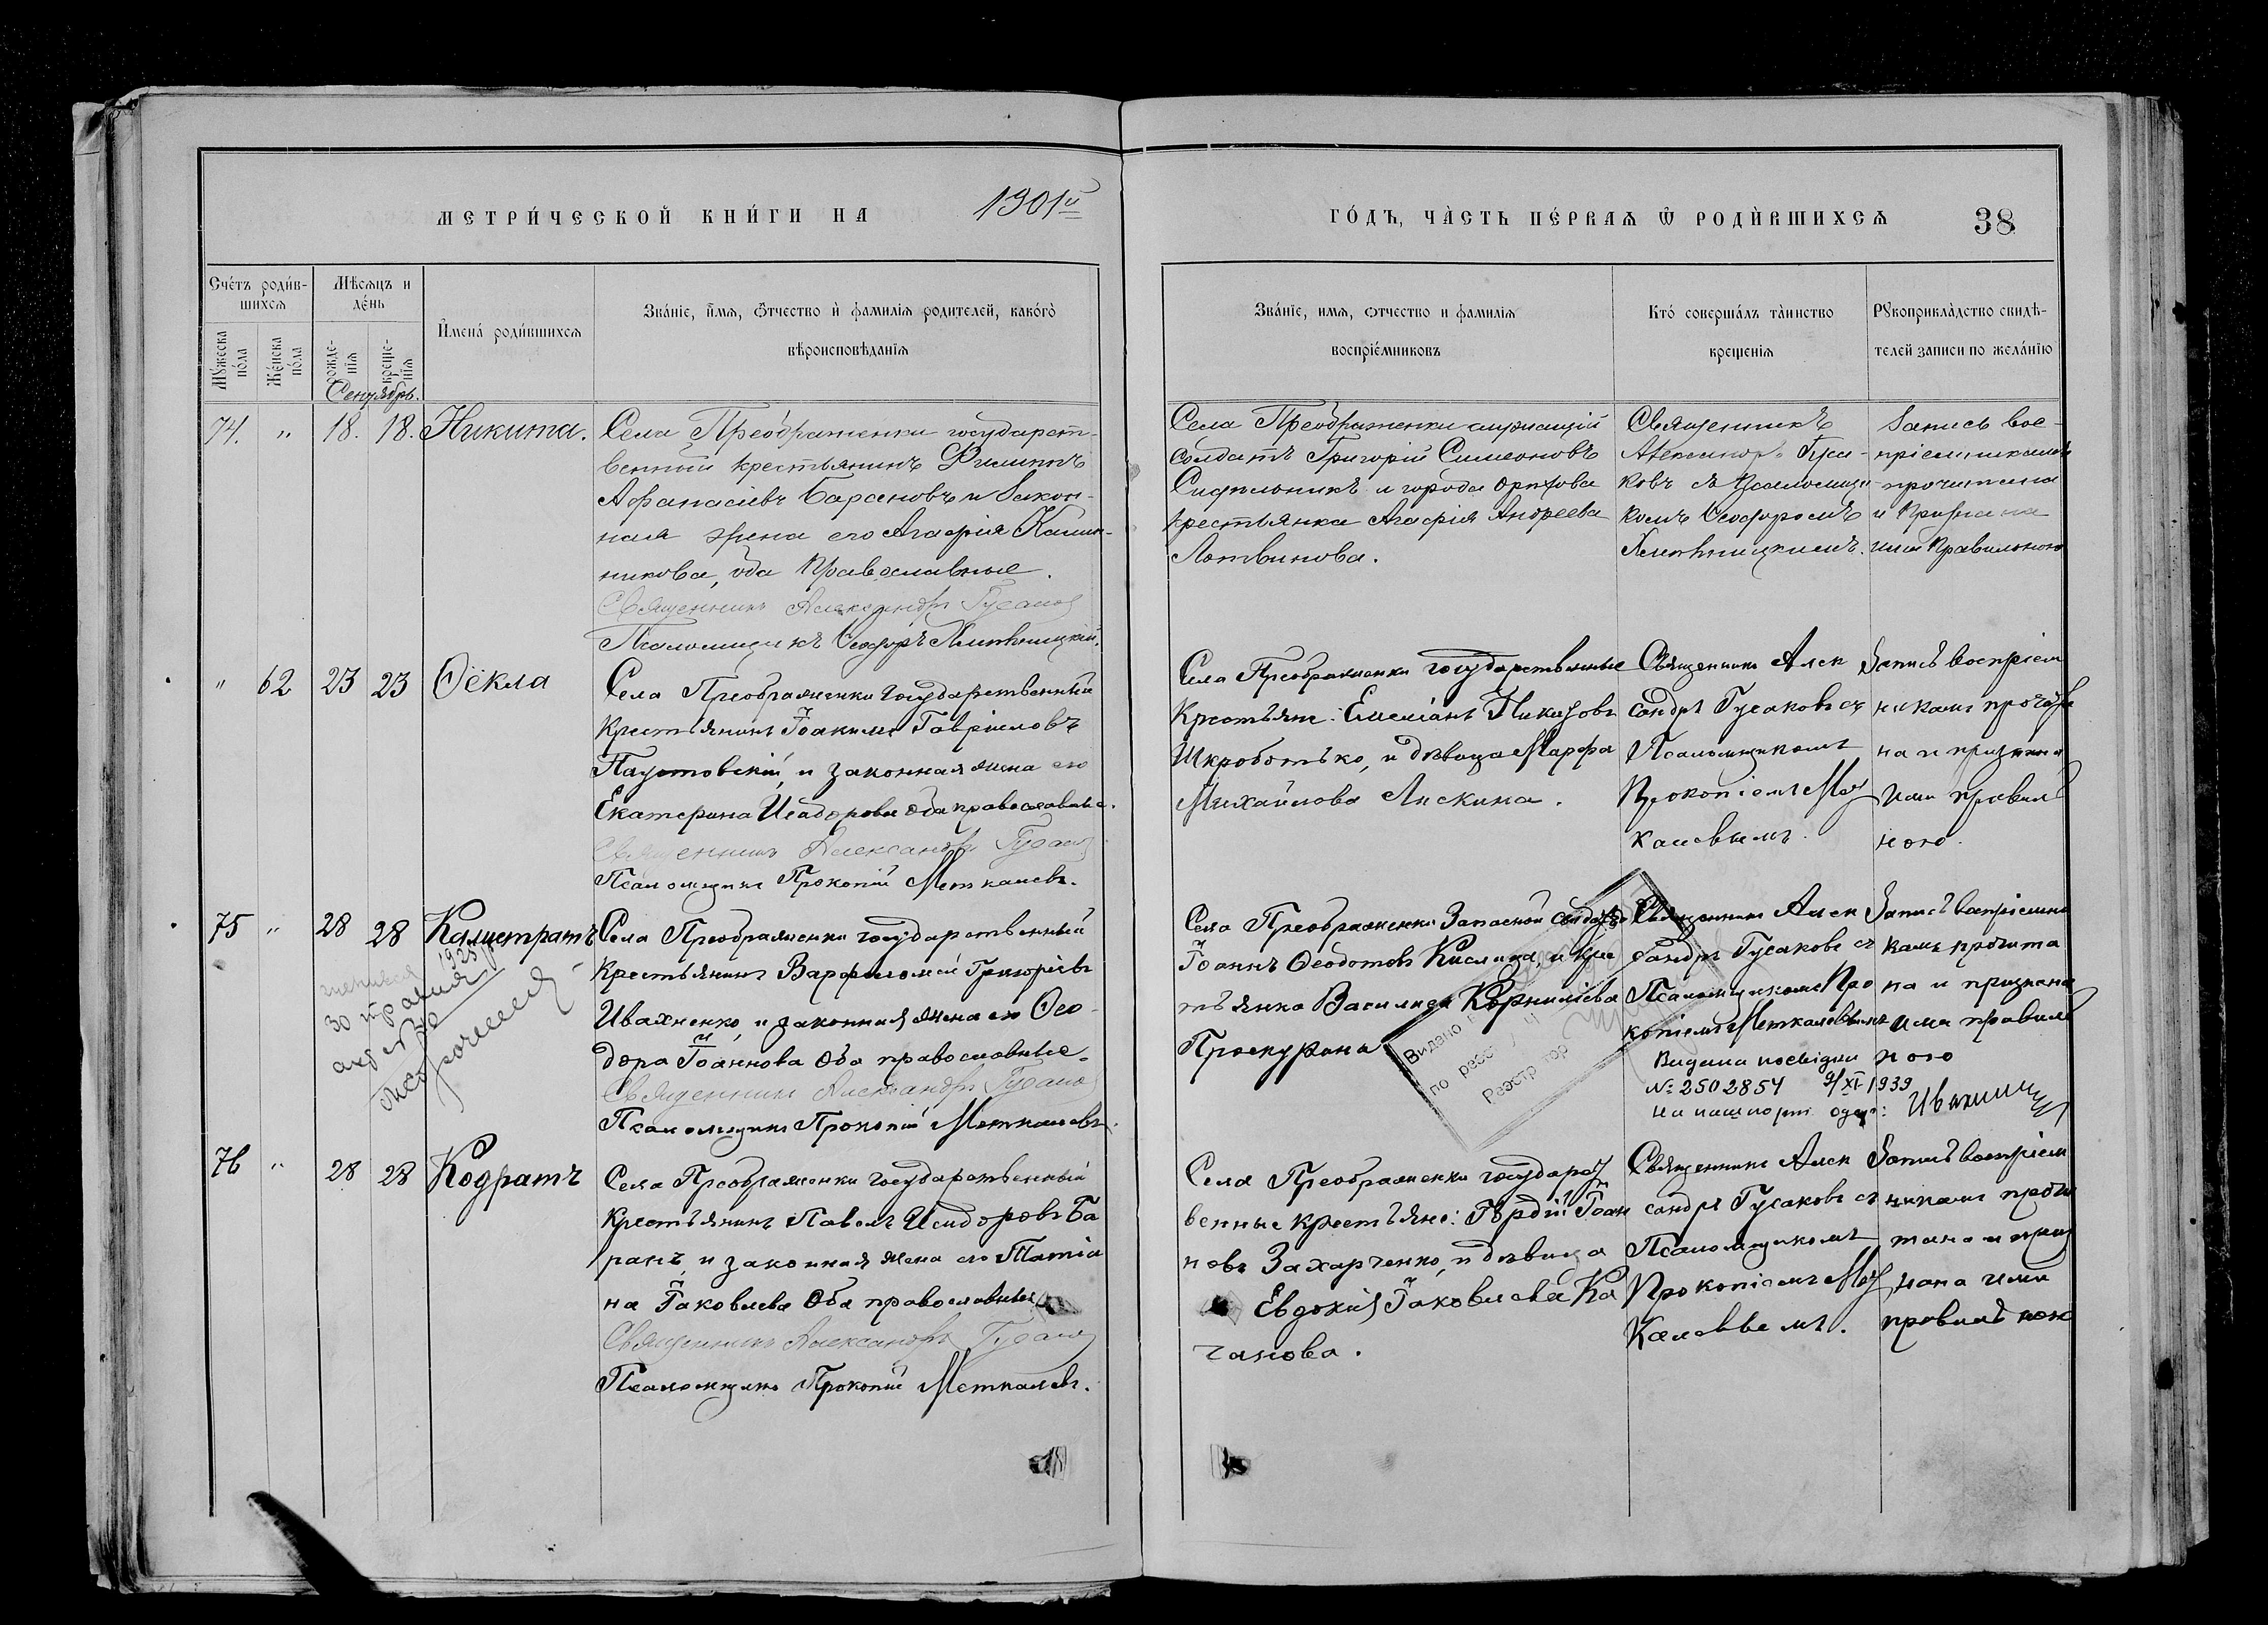 МЕТРИ́ЧЕСКОЙ КНИ́ГИ НА 1901й ГО́ДЪ, ЧА́СТЬ ПЕ́РВАЯ Ѿ РОДИ́ВШИХСЯ 38
Сче́тъ роди́в-
шихся
Мѣсяцъ и
де́нь
И҆мена́ роди́вшихся
Зва́нїе, и҆́мя, ѻ҆́тчество и҆ фамилїя родителей, како́гѡ
вѣроисповѣданїя
Му́жеска по́ла
Же́нска по́ла
рожде-
нїя
креще-
нїя
Сентябрь.
Зва́нїе, имя, ѻтчество и фамилїя
воспрїе́мниковъ
Кто́ соверша́лъ та́инство
крещенїя
Рꙋкоприкла́дство свидѣ-
телей записи по жела́нїю
74. " 18. 18. Никита.
Села Преображенки государст-
венный крестьянинъ Филиппъ
Афанасіевъ Барановъ и закон-
ная жена его Агафія
никова, оба православные.
Священникъ Александръ Гусаков
Псаломщикъ Ѳеодоръ
Села Преображенки
солдатъ Григорій Симеоновъ
и города Орѣхова
крестьянка Агафія Андреева
Литвинова.
Священникъ
Александръ Гуса-
ковъ съ Псаломщи-
комъ Ѳеодоромъ
Запись вос-
пріемниками
прочитана
и признана
ими правильною
" 62 23 23 Ѳёкла
Села Преображенки государственный
Крестьянинъ Іоакимъ Гавріиловъ
Паустовскій, и законная жена его
Екатерина Исидорова оба православные.
Священникъ Александръ Гусаков
Псаломщикъ Прокопій Меткалевъ.
Села Преображенки государственные
Крестьяне: Емеліанъ
Шкроботько, и дѣвица Марфа
Михайлова Лискина.
Священникъ Алек
сандръ Гусаковъ съ
Псаломщикомъ
Прокопіемъ Мет
калевымъ.
Запись воспріем
никами прочита
на и признана
ими правиль
ною.
75 " 28 28 Калистратъ
Села Преображенки государственный
Крестьянинъ Варфоломей Григоріевъ
Ивахненко, и законная жена его Ѳео-
дора Іоаннова Оба православные.
Священникъ Александръ Гусаков
Псаломщикъ Прокопій Меткалевъ.
1925
30 травня
Села Преображенки Запасной солдатъ
Іоаннъ Ѳеодотовъ Кислица, и крес
тьянка Василиса Корниліева
Проскурина
Священникъ Алек
сандръ Гусаковъ съ
Псаломщикомъ Про
копіемъ Меткалевымъ
Запись воспріемни
ками прочита
на и признана
ими правиль
ною
Видано
по реєст
Реєстратор
Видана посвідки
№ 2502854 9/XI-1939
на пашпорт одер:
76 " 28 28 Кодратъ
Села Преображенки государственный
Крестьянинъ Павелъ Исидоровъ Ба
ранъ, и законная жена его Татіа
на Іаковлева Оба православные
Священникъ Александръ Гусаков
Псаломщикъ Прокопій Меткалевъ.
Села Преображенки государст
венные крестьяне: Гордій Іоан
новъ Захарченко, и дѣвица
Евдокія Іаковлева Ка
чанова.
Священникъ Алек
сандръ Гусаковъ съ
Псаломщикомъ
Прокопіемъ Мет
калевымъ.
Запись воспріем
никами прочи
тана и приз
нана ими
правильною